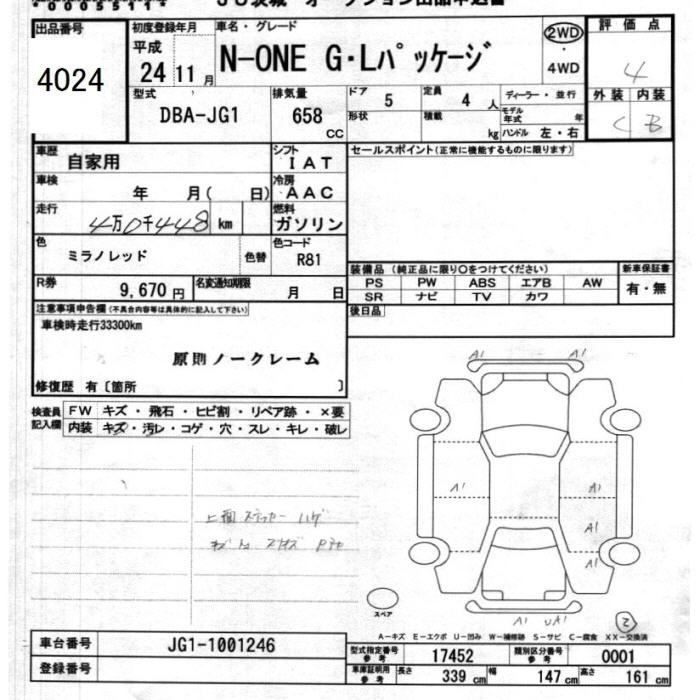 出品番号
4024
初度登録年月
平成
24 11 月
車名・グレード
N-ONE G・Lパッケージ
2WD
・
4WD
評価点
4
外装 内装
C B
型式
DBA-JG1
排気量
658
CC
ドア 5
定員 4 人
形状
積載 kg
ディーラー・並行
モデル年式 年
ハンドル 左・右
車歴
自家用
シフト
IAT
車検
年 月( 日)
冷房
AAC
走行
4万0千448 km
燃料
ガソリン
色
ミラノレッド
色替
色コード
R81
R券
9,670 円
名変通知期限
月 日
セールスポイント(正常に機能するものに限ります)
装備品 (純正品に限り○をつけてください)
PS PW ABS エアB AW
SR ナビ TV カワ
新車保証書
有・無
後日品
注意事項申告欄(不具合内容等は具体的に記入して下さい)
車検時走行33300km
原則ノークレーム
修復歴 有〔箇所 〕
検査員記入欄
FW キズ・飛石・ヒビ割・リペア跡・×要
内装 キズ・汚レ・コゲ・穴・スレ・キレ・破レ
A1 A1
A1 A1
A1
A1
A1 UA1
スペア
2
A-キズ E-エクボ U-凹み W-補修跡 S-サビ C-腐食 XX-交換済
車台番号
JG1-1001246
登録番号
型式指定番号
参考
17452
類別区分番号
参考
0001
車庫証明用
参考
長さ 339 cm
幅 147 cm
高さ 161 cm